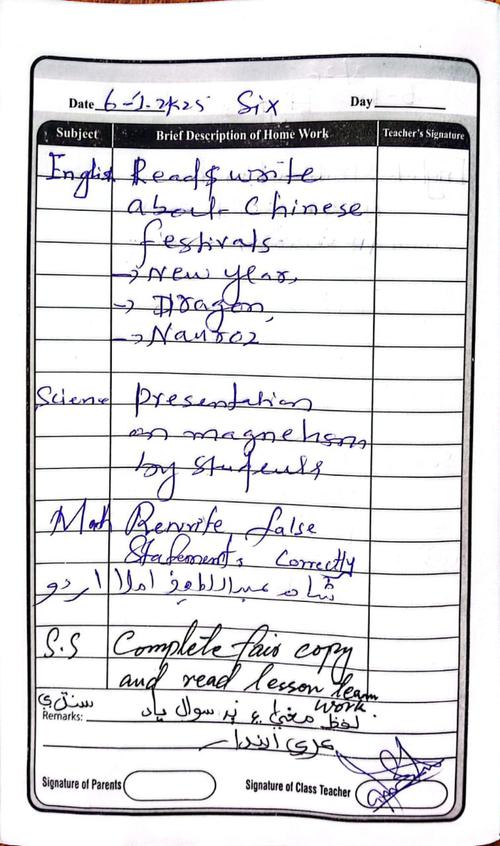 Date 6-1-2k25 Six Day
Subject Brief Description of Home Work Teacher's Signature
English Read & write
about Chinese
festivals
→ New year,
→ Dragon,
→ Nauroz
Science Presentation
on magnetism
by students
Math Rewrite false
Statements correctly
اردو املا شاه عبداللطيف
S.S Complete fair copy
and read lesson team
work.
سنڌي لفظ معنيٰ ۽ سوال ياد
Remarks:
Signature of Parents Signature of Class Teacher